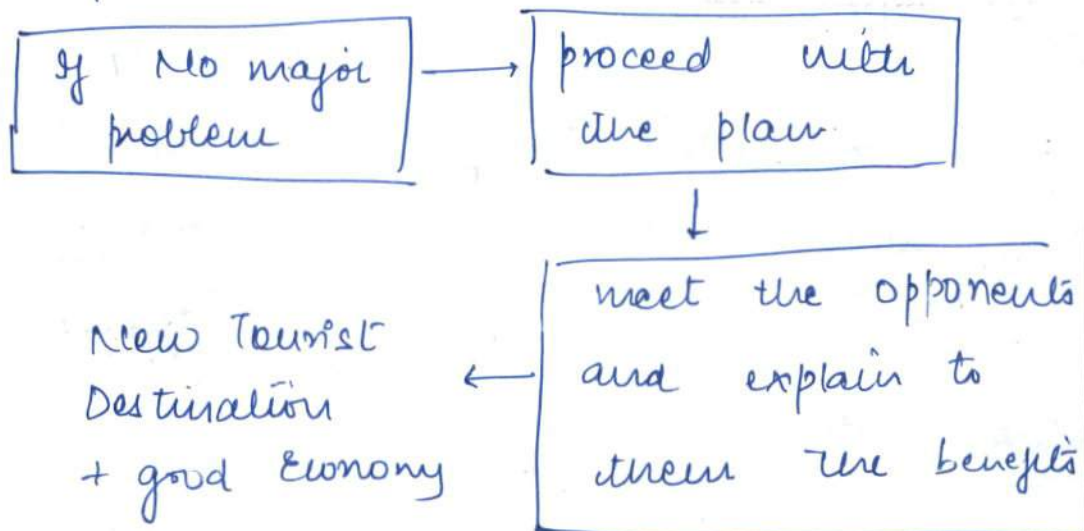 If No major
problem
proceed with
the plan
meet the opponents
and explain to
them the benefits
New Tourist
Destination
+ good Economy